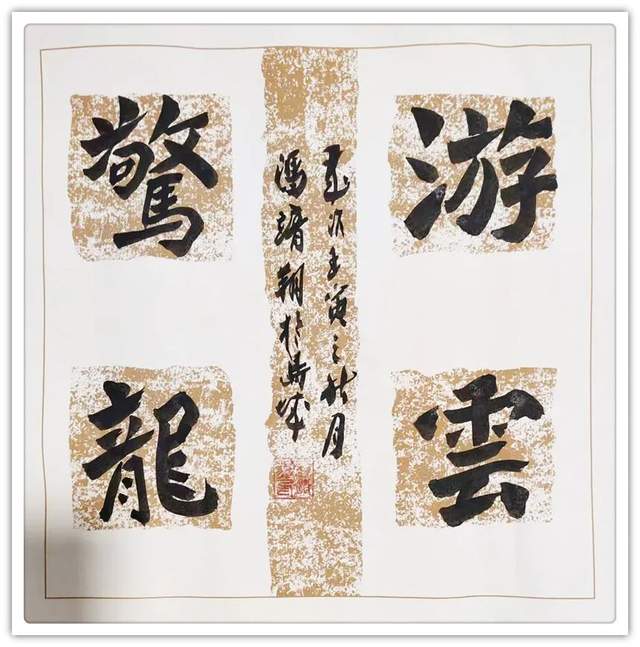 游雲
驚龍
歲次壬寅之秋月
馮靖翔於